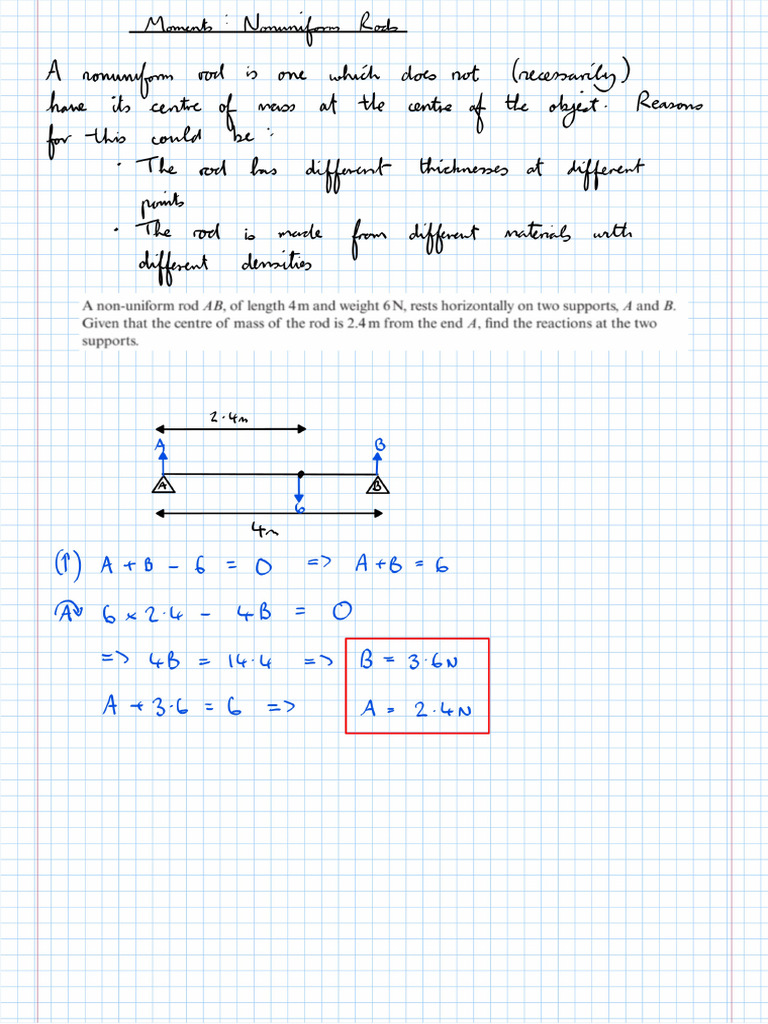 Moments: Nonuniform Rods
A nonuniform rod is one which does not (necessarily)
have its centre of mass at the centre of the object. Reasons
for this could be:
• The rod has different thicknesses at different
points
• The rod is made from different materials with
different densities
A non-uniform rod AB, of length 4 m and weight 6 N, rests horizontally on two supports, A and B.
Given that the centre of mass of the rod is 2.4 m from the end A, find the reactions at the two
supports.
2.4m
A B
A B
6
4m
(↑) A + B - 6 = 0 => A+B = 6
A↷ 6 × 2.4 - 4B = 0
=> 4B = 14.4 => B = 3.6N
A + 3.6 = 6 => A = 2.4N